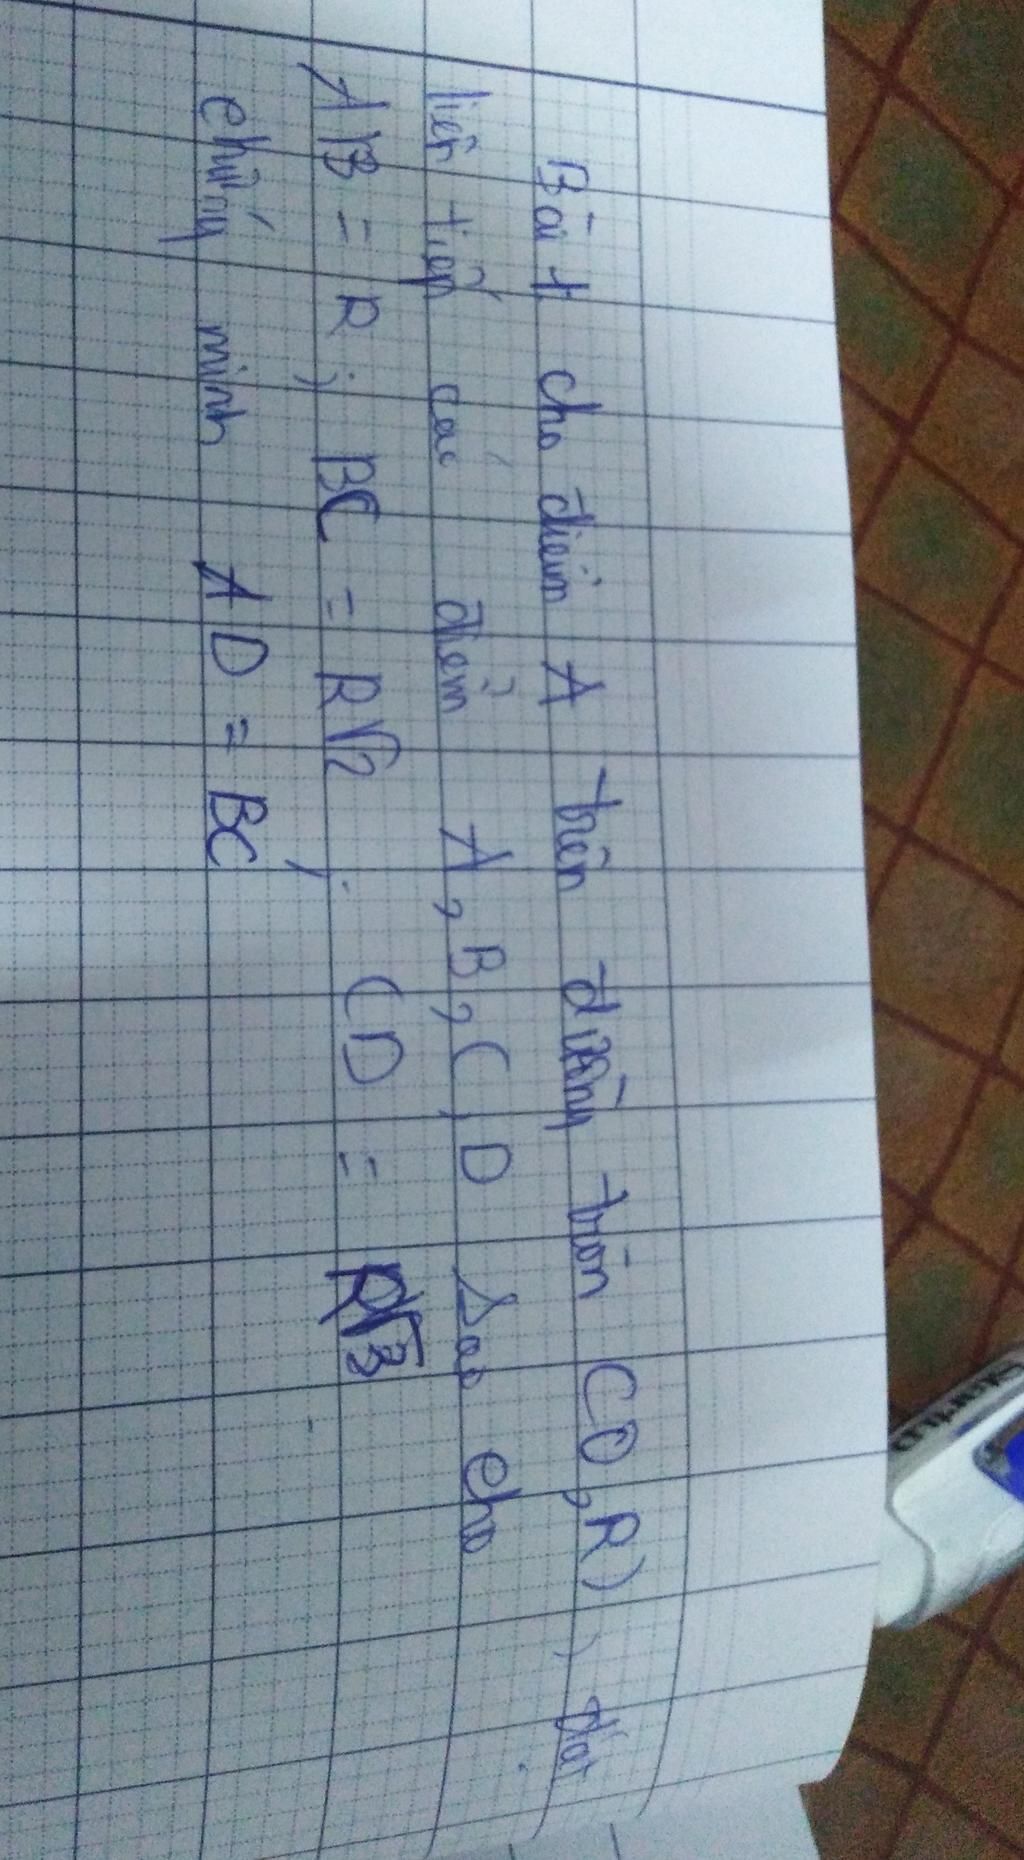 Bài + cho điểm A trên đường tròn (O,R), đặt
liên tiếp các điểm A, B, C, D sao cho
AB = R; BC = R√2; CD = R√3
chứng minh AD = BC